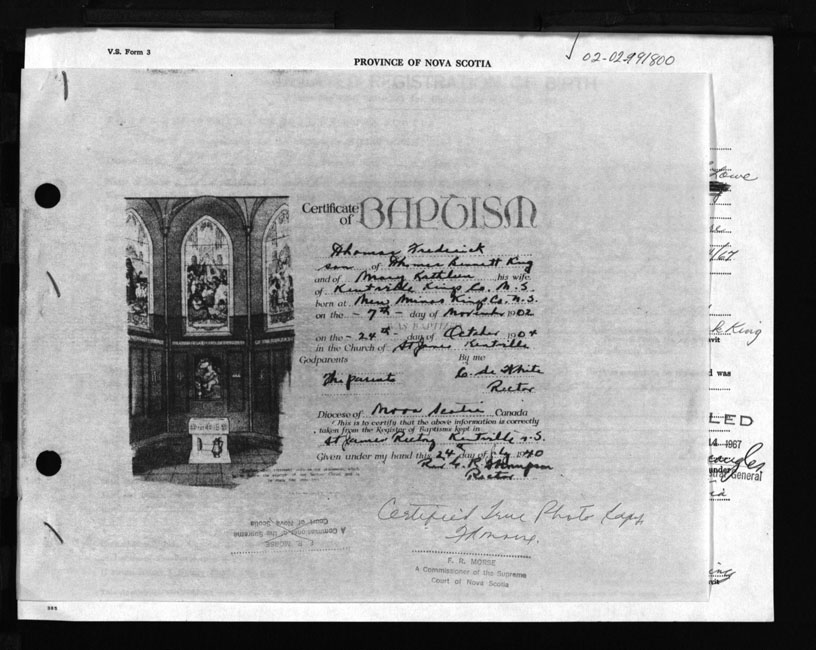 V.S. Form 3
PROVINCE OF NOVA SCOTIA
02-02-191800
Certificate of BAPTISM
Thomas Frederick
son of Thomas Bennett King
and of Mary Kathleen his wife
of Kentville Kings Co. N.S.
born at New Minas Kings Co. N.S.
on the - 7th - day of November 1902
WAS BAPTIZED
on the - 24th - day of October 1904
in the Church of St James Kentville
Godparents By me
The parents C. De White
Rector
Diocese of Nova Scotia Canada
This is to certify that the above information is correctly
taken from the Register of Baptisms kept in
St James Rectory Kentville N.S.
Given under my hand this 24th day of July 1940
Rev. G. R. Thompson
Rector
Certified True Photo Copy
F. R. Morse
F. R. MORSE
A Commissioner of the Supreme
Court of Nova Scotia
F. R. MORSE
A Commissioner of the Supreme
Court of Nova Scotia
Lowe
/67
King
was
LED
14 1967
General
385